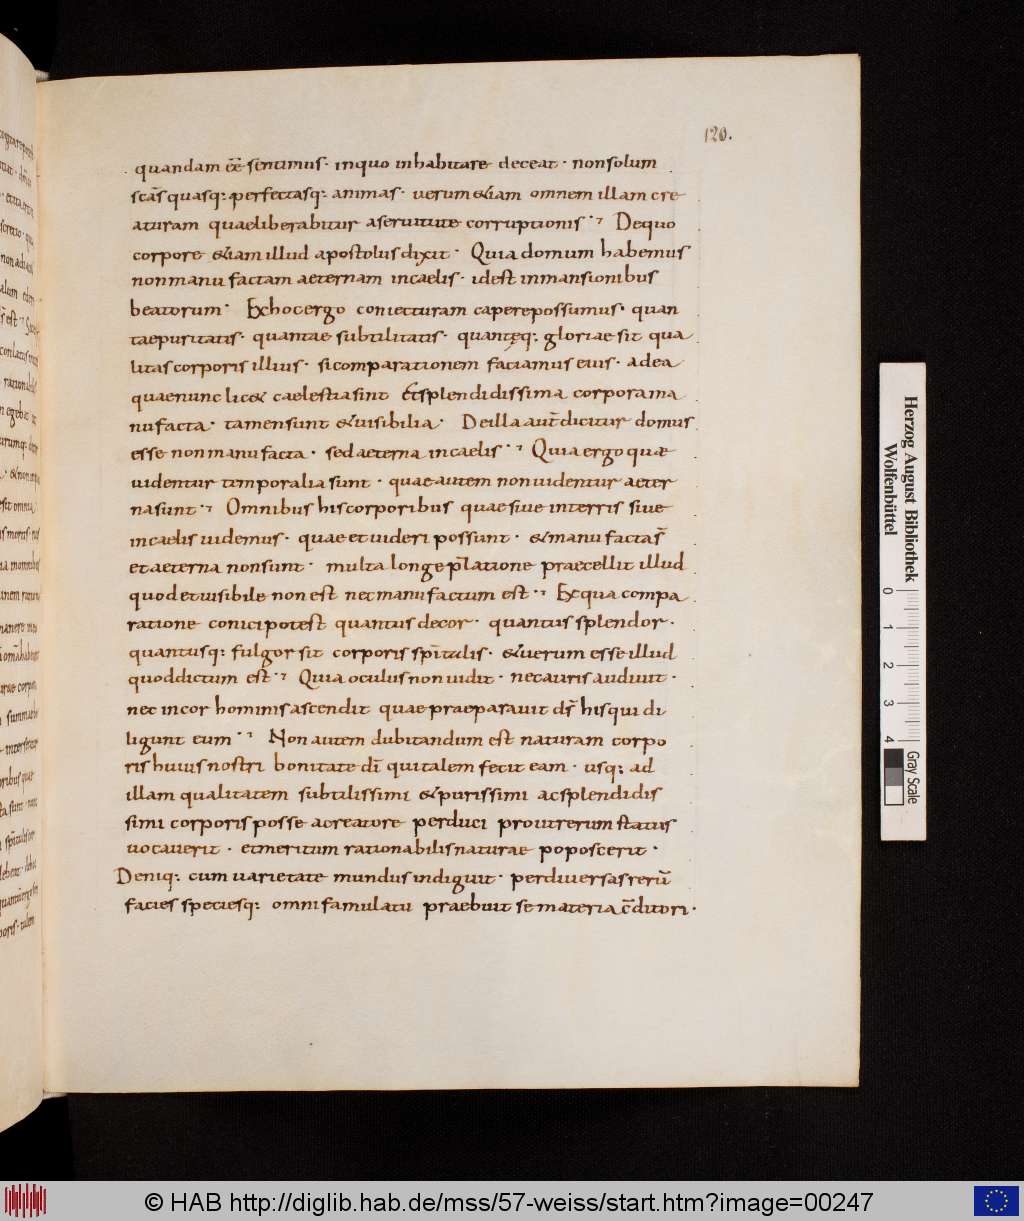 120.
quandam eē sentimus · inquo inhabitare deceat · nonsolum
scāsquasq: perfectasq: animas · uerum&iam omnem illam cre
aturam quaeliberabitur aseruitute corruptionis ·⁊ Dequo
corpore &iamillud apostolusdixit · Quia domum habemus
nonmanu factam aeternam incaelis · idest inmansionibus
beatorum · Exhocergo coniecturam caperepossumus · quan
taepuritatis · quantae subtilitatis · quantęq: gloriae sit qua
litascorporis illius · sicomparationem faciamus eius · adea
quaenunc lic& caelestiasint Etsplendidissima corporama
nufacta · tamensunt &uisibilia · Deilla aut̄dicitur domus
esse nonmanu facta · sedaeterna incaelis ·⁊ Quiaergo quæ
uidentur temporalia sunt · quaeautem nonuidentur aeter
nasunt ·⁊ Omnibus hiscorporibus quaesiue interris siue
incaelis uidemus · quae etuideri possunt · &manu factas̄
etaeterna nonsunt · multa longe p̄latione praecellit illud
quodetuisibile non est necmanu factum est ·⁊ Exqua compa
ratione conicipotest quantus decor · quantus splendor ·
quantusq: fulgor sit corporis spīitalis · &uerum esse illud
quoddictum est ·⁊ Quia oculus non uidit · necauris audiuit ·
nec incor hominis ascendit quae praeparauit dꝭ hisqui di
ligunt eum ·⁊ Non autem dubitandum est naturam corpo
ris huius nostri bonitate dī quitalem fecit eam · usq: ad
illam qualitatem subtilissimi &purissimi acsplendidis
simi corporis posse acreatore perduci proutrerum status
uocauerit · etmeritum rationabilisnaturae poposcerit ·
Deniq: cum uarietate mundus indiguit · perdiuersasrerū
facies speciesq: omni famulatu praebuit se materia c̄ditori ·
Herzog August Bibliothek
Wolfenbüttel
0 1 2 3 4
Gray Scale
© HAB http://diglib.hab.de/mss/57-weiss/start.htm?image=00247